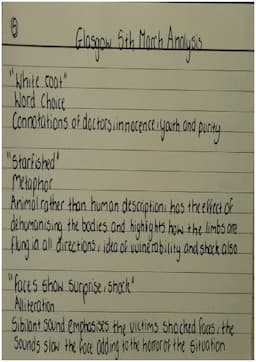 Glasgow 5th March Analysis
"White coat"
Word Choice
Connotations of doctors, innocence, youth and purity
"Starfished"
Metaphor
Animal rather than human description, has the effect of
dehumanising the bodies and highlights how the limbs are
flung in all directions, idea of vulnerability and shock also
"faces show surprise, shock"
Alliteration
Sibilant sound emphasises the victims shocked faces, the
sounds slow the pace adding to the horror of the situation